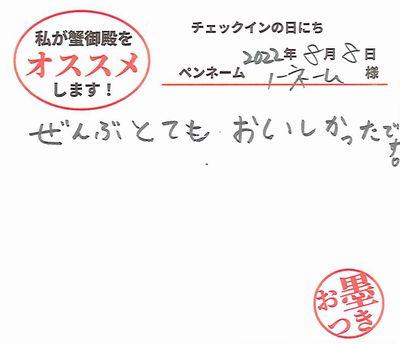 私が蟹御殿を
オススメ
します！
チェックインの日にち
2022年8月8日
ペンネーム ノーネーム 様
ぜんぶとても おいしかったです。
お墨つき